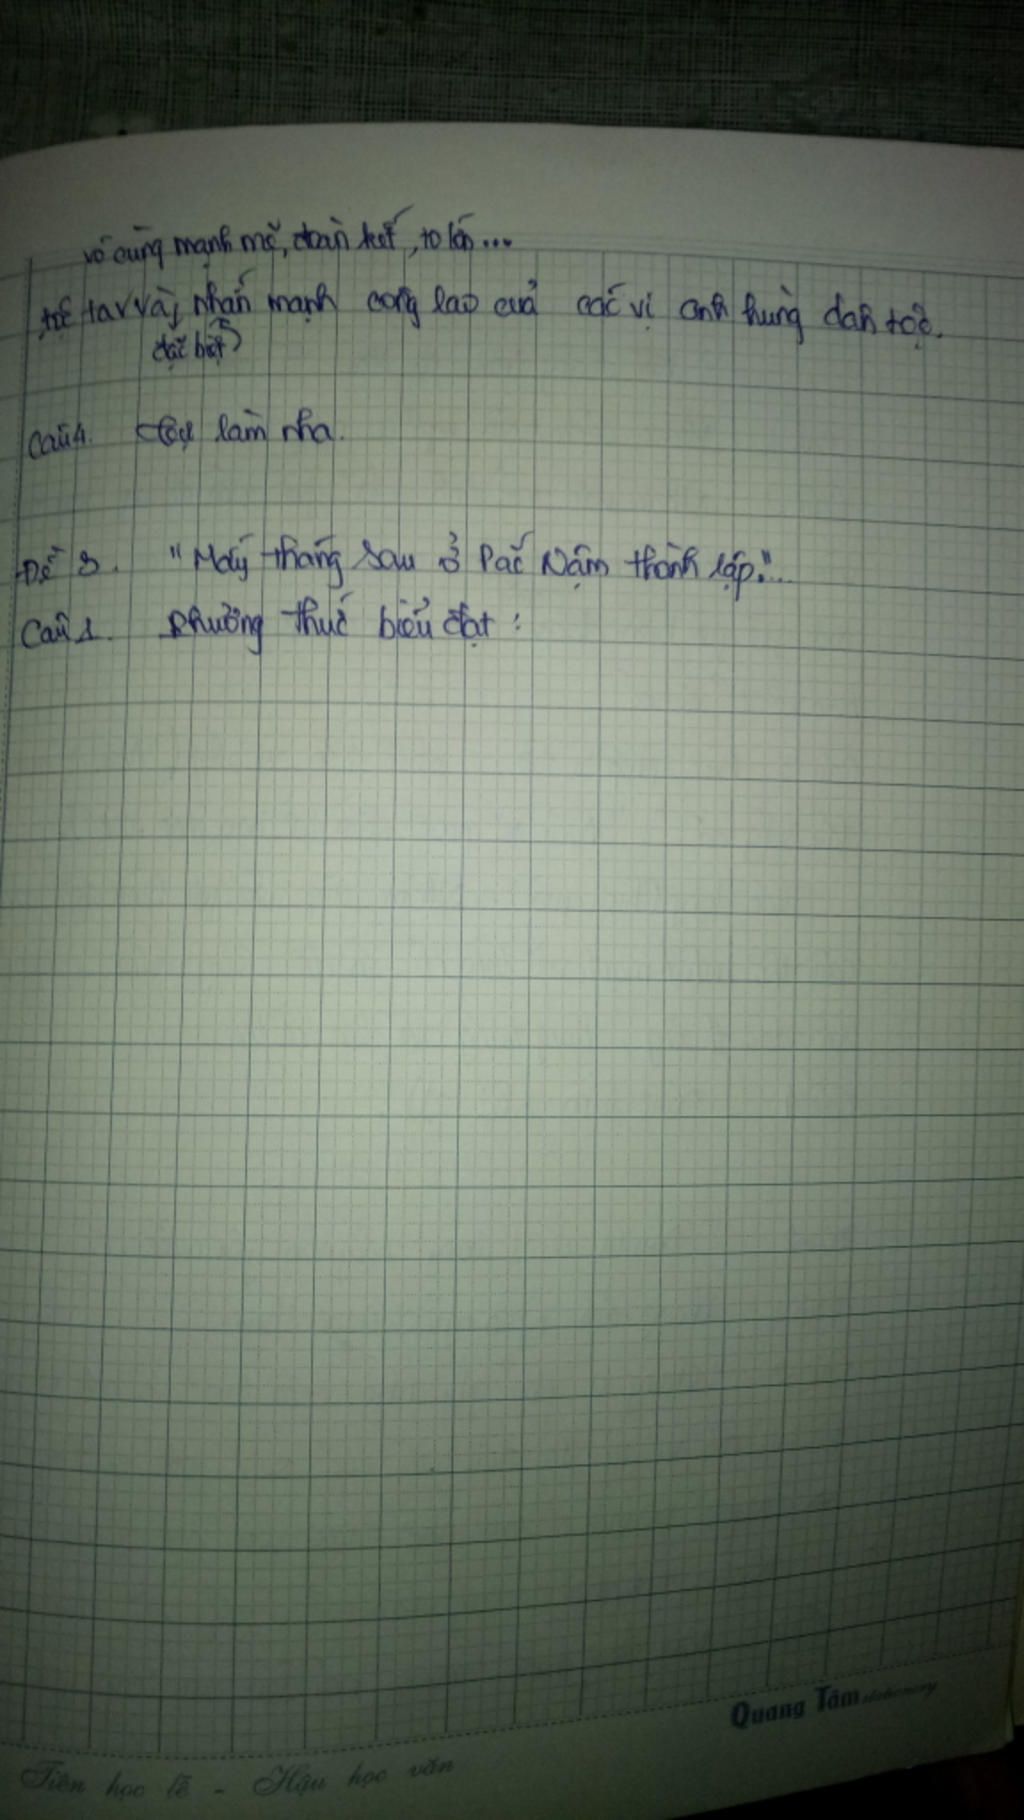 vô cùng mạnh mẽ, đoàn kết, to lớn...
tộc ta và, nhấn mạnh công lao của các vị anh hùng dân tộc.
đặc biệt
Câu 4. tự làm nha.
Đề 3. "Mấy tháng sau ở Pắc Nậm thành lập."...
Câu 1. Phương thức biểu đạt:
Quang Tâm stationery
Tiên học lễ - Hậu học văn